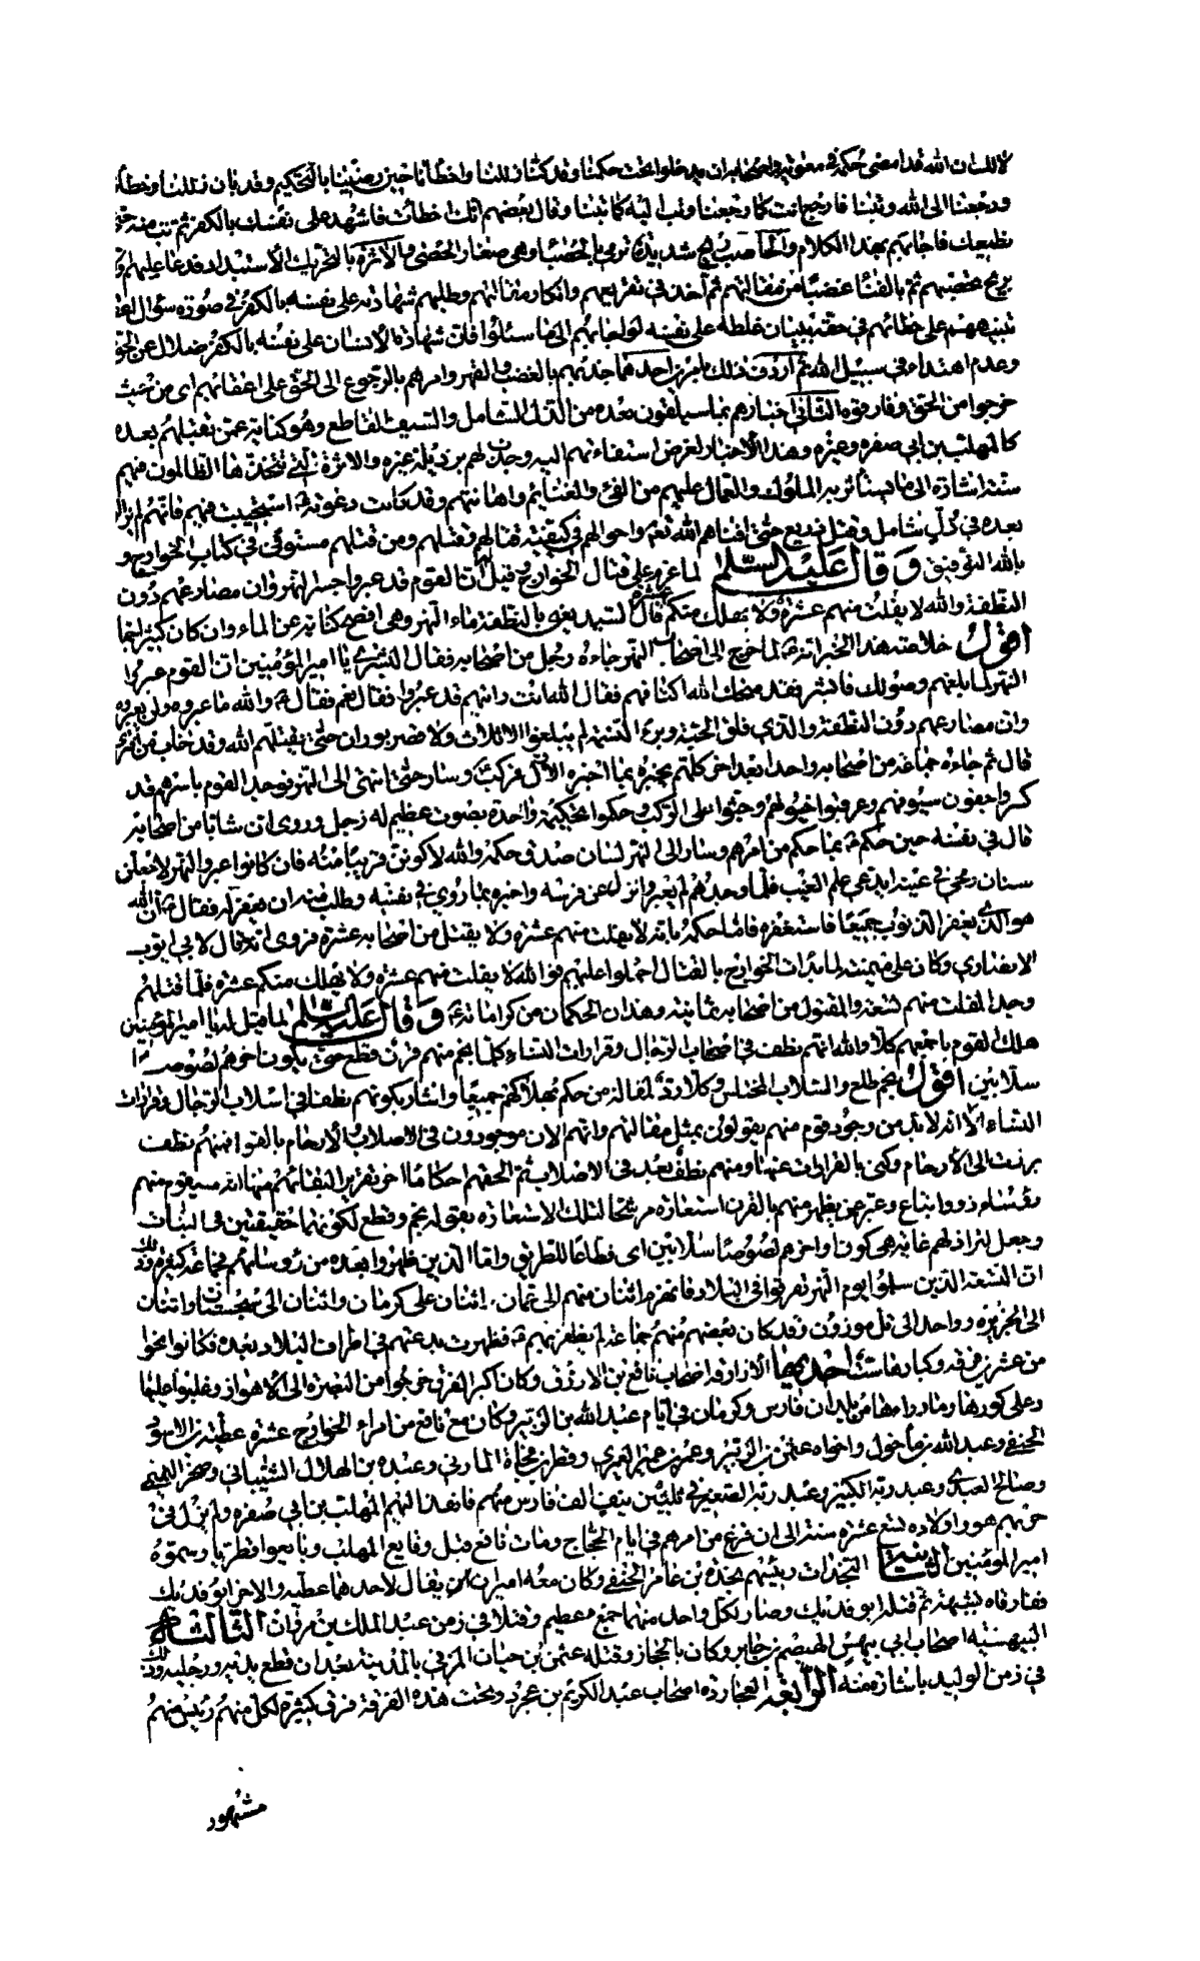 لا لك ان الله قد امضى حكمه في معوية واصحابه ان يدخلوا تحت حكمنا وقد كنا زللنا واخطأنا حين رضينا بالتحكيم وقد بان زللنا وخطأنا
ورجعنا الى الله وتبنا فارجع انت كما رجعنا وتب اليه كما تبنا وقال بعضهم انك اخطأت فاشهد على نفسك بالكفر ثم تب منه حتى
نطيعك فاجابهم بهذا الكلام والحاصب ريح شديدة ترمي بالحصباء وهي صغار الحصى والاثرة بالتحريك الاستبداد فدعا عليهم اولا
بريح تحصبهم ثم بالفناء غضبا من مقالتهم ثم اخذ في تقريعهم وانكار مقالتهم وطلبهم شهادته على نفسه بالكفر في صورة سؤال
تنبيههم على خطائهم في حقه ببيان غلطه على نفسه لو اجابهم الى ما سئلوا فان شهادة الانسان على نفسه بالكفر ضلال عن الحق
وعدم اهتداء في سبيل الله ثم اردف ذلك بامرين احدهما جذبهم بالغضب والقهر وامرهم بالرجوع الى الحق على اعقابهم اي من حيث
خرجوا من الحق وفارقوه الثاني اخبارهم بما سيلقون بعده من الذل الشامل والسيف القاطع وهو كناية عمن يقتلهم بعده
كالمهلب بن ابي صفرة وغيره وهذا الاخبار لغرض استفاءتهم اليه وجذب لهم برذيلة غيره والاثرة التي تتخذها الظالمون فيهم
سنة اشارة الى ما يستأثر به الملوك والعمال عليهم من الفئ والغنائم واهانتهم وقد كانت دعوته ع استجيبت فيهم فانهم لم يزالوا
بعده في ذل شامل وقتل ذريع حتى افناهم الله تعم واحوالهم في كيفية قتالهم وقتلهم ومن قتلهم مستوفى في كتاب الخوارج و
بالله التوفيق وقال عليه السلم لما عزم على قتال الخوارج وقيل له ان القوم قد عبروا جسر النهروان مصارعهم دون
النطفة والله لا يفلت منهم عشرة ولا يهلك منكم عشرة قال السيد يعني بالنطفة ماء النهر وهي افصح كناية عن الماء وان كان كثيرا جما
اقول خلاصة هذا الخبر انه ع لما خرج الى اصحاب النهر جاءه رجل من اصحابه فقال البشرى يا امير المؤمنين ان القوم عبروا
النهر لما بلغهم وصولك فابشر فقد منحك الله اكتافهم فقال الله انت رايتهم قد عبروا فقال نعم فقال ع والله ما عبروه ولن يعبروه
وان مصارعهم دون النطفة والذي فلق الحبة وبرئ النسمة لم يبلغوا الاثلاث ولا قصر بوران حتى يقتلهم الله وقد خاب من افترى
قال ثم جاءه جماعة من اصحابه واحدا بعد اخر كلهم يخبره بما اخبره الاول فركب ع وسار حتى انتهى الى النهر فوجد القوم باسرهم قد
كسروا جفون سيوفهم وعرقبوا خيولهم وجثوا على الركب وحكموا تحكيمة واحدة بصوت عظيم له زجل وروى ان شابا من اصحابه
قال في نفسه حين حكم ع بما حكم من امرهم وسار الى النهر لبيان صدق حكمه والله لاكونن قريبا منه فان كانوا عبروا النهر لاجعلن
سنان رمحي في عينه ايدعي علم الغيب فلما وجدهم لم يعبروا نزل عن فرسه واخبره بما روي في نفسه وطلب منه ان يغفر له فقال ع ان الله
هو الذي يغفر الذنوب جميعا فاستغفره فاما حكمه بانه لا يفلت منهم عشرة ولا يقتل من اصحابه عشرة فروى انه قال لابي ايوب
الانصاري وكان على ميمنته لما بدات الخوارج بالقتال احملوا عليهم فوالله لا يفلت منهم عشرة ولا يهلك منكم عشرة فلما قتلهم
وجد المفلت منهم تسعة والمقتول من اصحابه ثمانية وهذان الحكمان من كراماته ع وقال عليه السلم لما قيل له يا امير المؤمنين
هلك القوم باجمعهم كلا والله انهم نطف في اصحاب الرجال وقرارات النساء كلما نجم منهم قرن قطع حتى يكون اخرهم لصوصا
سلابين اقول نجم طلع والسلاب المختلس وكلا رد لمقالة من حكم بهلاكهم جميعا واشار بكونهم نطفا في اسلاب الرجال وقرارات
النساء الا انه لا بد من وجود قوم منهم يقولون بمثل مقالتهم وانهم الان موجودون في الاصلاب والارحام بالقوة فمنهم نطف
برزت الى الارحام وكنى بالقرارات عنها ومنهم نطف بعد في الاصلاب ثم الحقهم احكاما اخر تقريرا لبقائهم منها انه سيقوم منهم
رؤساء ذووا اتباع وعبر عمن يظهر منهم بالقرن استعارة مرشحا لتلك الاستعارة بقوله نجم وقطع لكونهما حقيقتين في النبات
وجعل لتراذلهم غاية هي كون اواخرهم لصوصا سلابين اي قطاعا للطريق واما الذين ظهروا بعده من رؤسائهم فجماعة كثيرة وذلك
ان التسعة الذين سلموا يوم النهر تفرقوا في البلاد فانهزم اثنان منهم الى عمان واثنان على كرمان واثنان الى سجستان واثنان
الى الجزيرة وواحد الى تل موزون وقد كان بعضهم منهم جماعة لم يظفر بهم ع فظهرت بدعتهم في اطراف البلاد بعده فكانوا نحوا
من عشرين فرقة وكبارها ست احديها الازارقة اصحاب نافع بن الازرق وكان اكبر الفرق خرجوا من البصرة الى الاهواز وغلبوا عليها
وعلى كورها وما وراءها من بلدان فارس وكرمان في ايام عبد الله بن الزبير وكان مع نافع من امراء الخوارج عشرة عطية بن الاسود
الحنفي وعبد الله بن ماخول واخواه عثمن بن الزبير وعمر بن عمير العمري وقطري بن فجاة المازني وعبدة بن الهلال الشيباني وصخر التميمي
وصالح العبدي وعبد ربه الكبير وعبد ربه الصغير في ثلثين ونيف الف فارس منهم فانفذ اليهم المهلب بن ابي صفرة ولم يزل في
حربهم هو واولاده تسع عشرة سنة الى ان فرغ من امرهم في ايام الحجاج ومات نافع قبل وقايع المهلب وبايعوا قطريا وسموه
امير المؤمنين الثانية النجدات رئيسهم نجدة بن عامر الحنفي وكان معه اميران يقال لاحدهما عطية والاخر ابو فديك
ففارقاه بشبهة ثم قتله ابو فديك وصار لكل واحد منهما جمع عظيم وقتلا في زمن عبد الملك بن مروان الثالثة
البيهسية اصحاب ابي بيهس الهيصم بن جابر وكان بالحجاز وقتله عثمن بن حيان المزني بالمدينة بعد ان قطع يديه ورجليه وذلك
في زمن الوليد باشارة منه الرابعة العجاردة اصحاب عبد الكريم بن عجرد وتحت هذه الفرقة فرق كثيرة لكل منهم رئيس منهم
مشهور